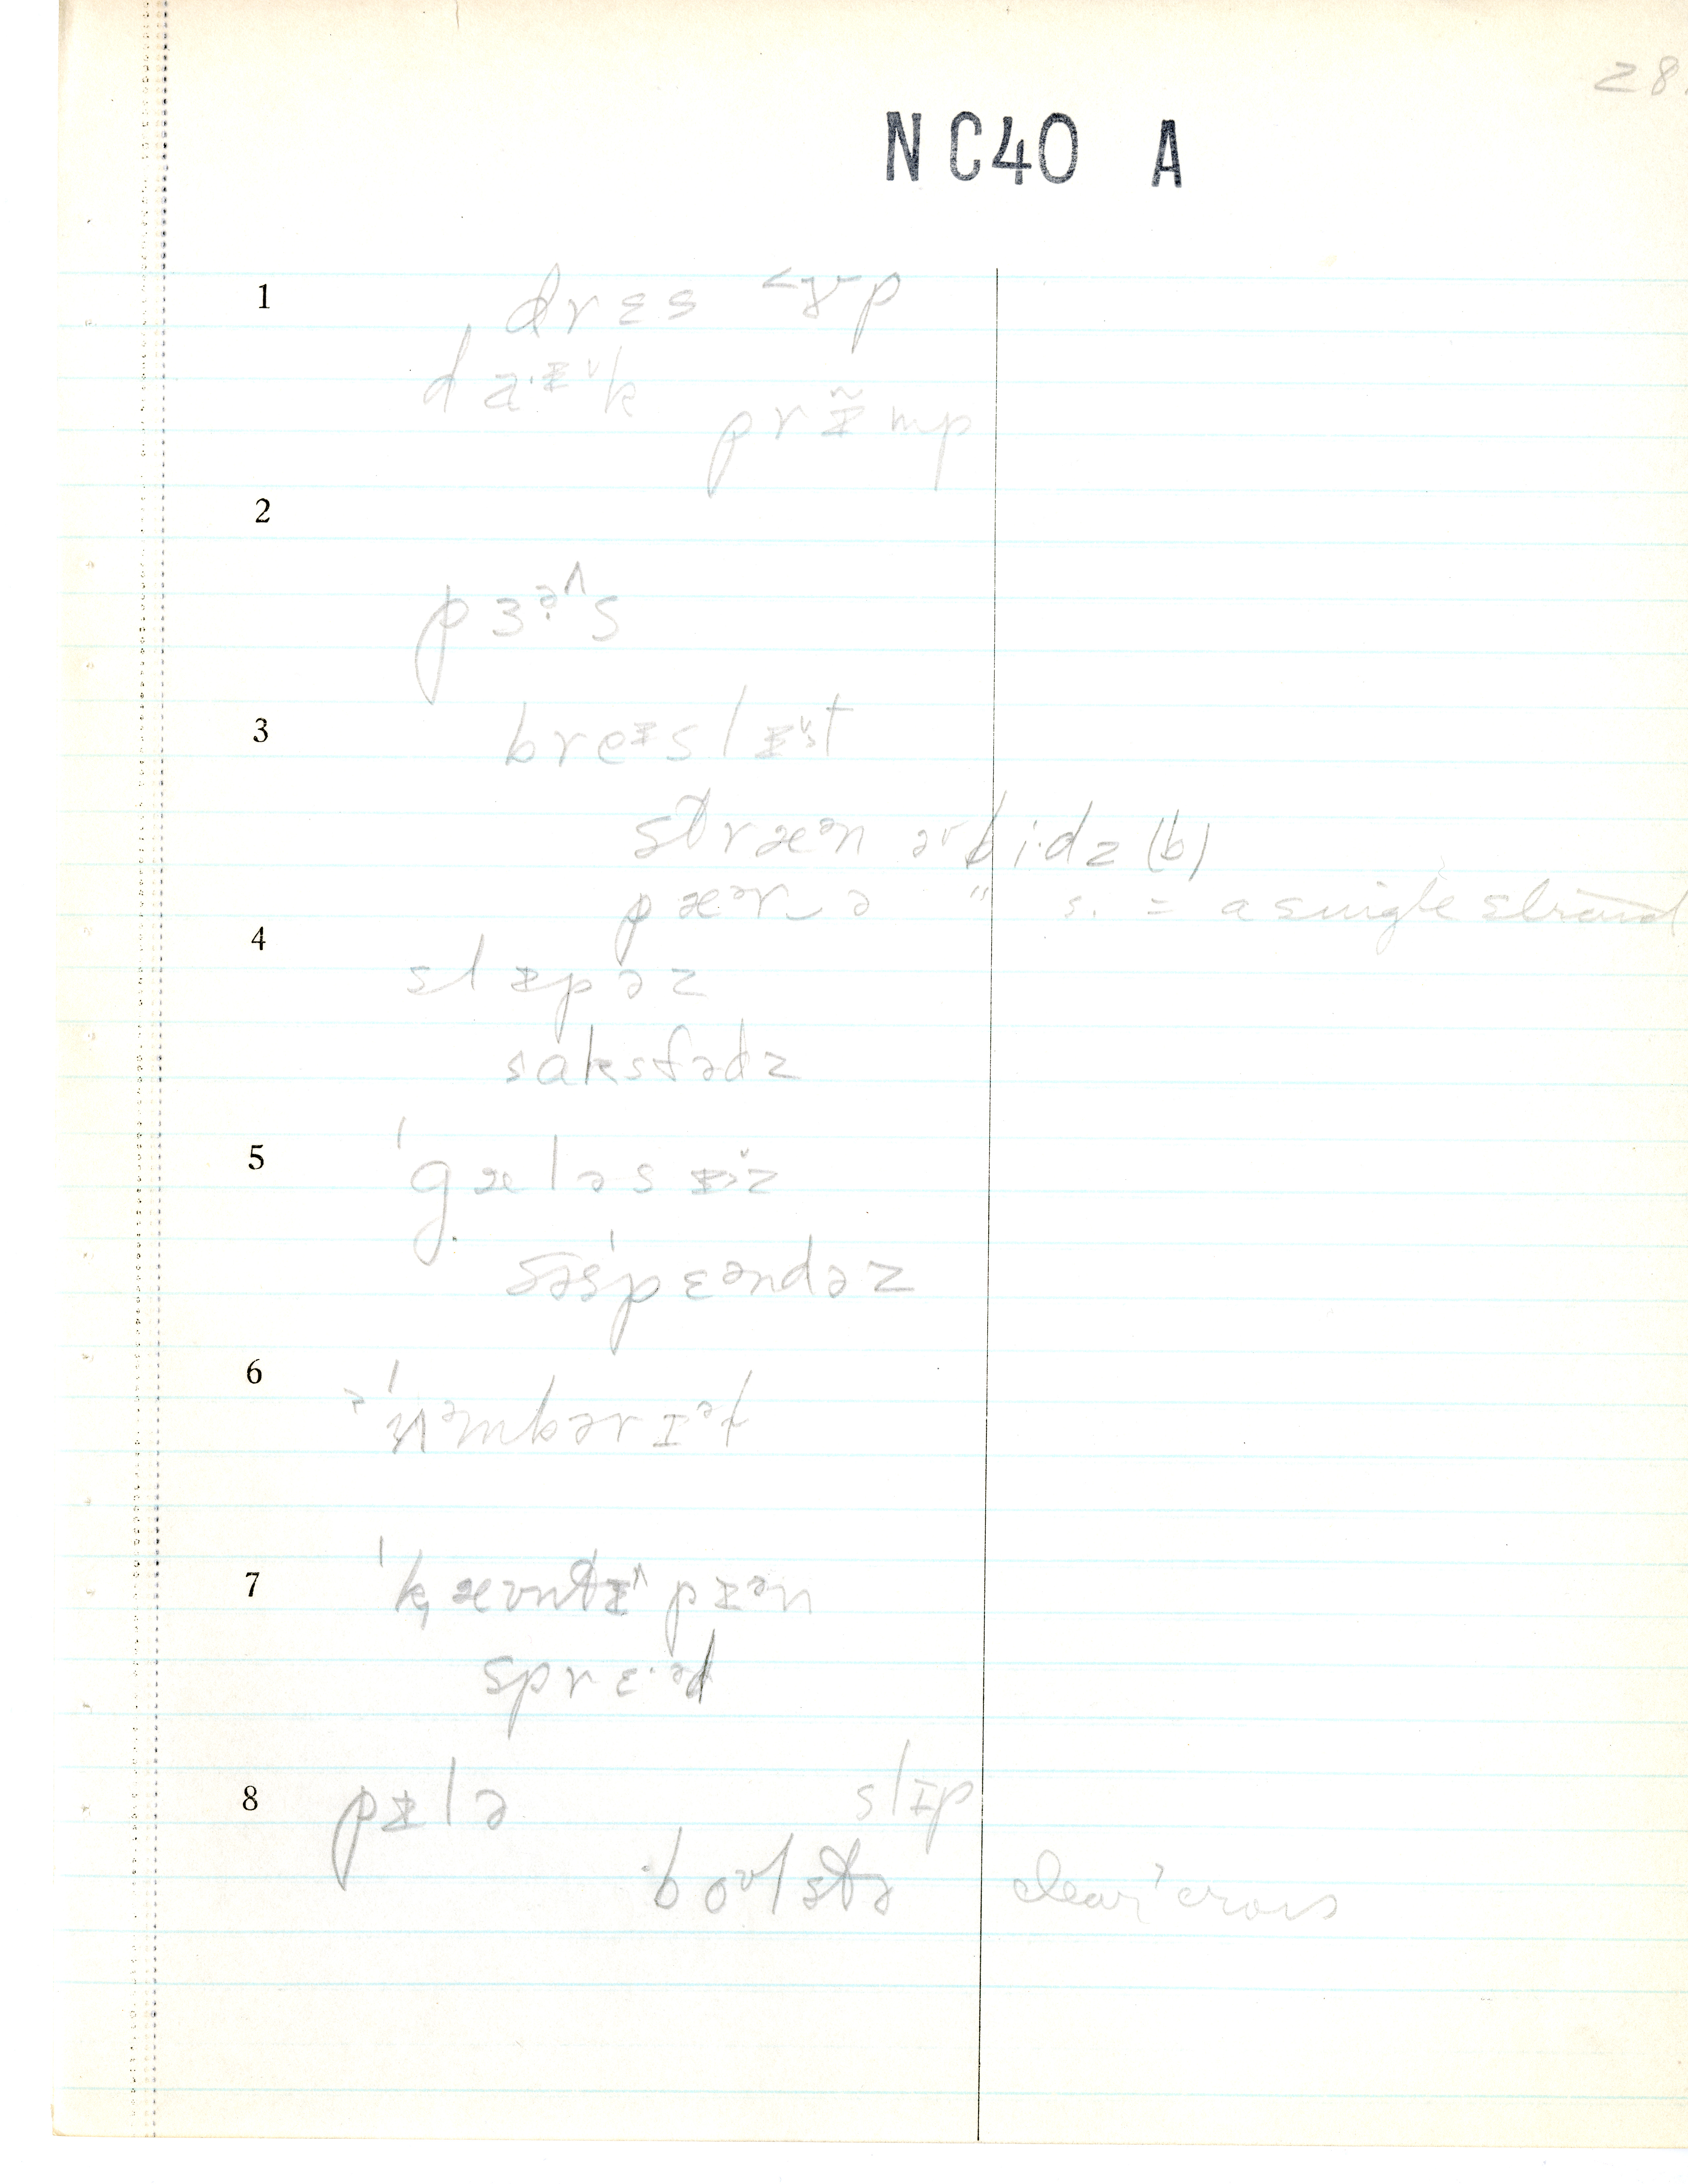 28
NC40 A
1
drɛs ˂ɤ˔p
da·ᵻ˅k
prᵻ̃mp
2
pɜə̣^s
3
breᵻslᵻ˅t
stræᵊn ə˅bi·dz (b)
pæᵊr‿ə " s. = a single strand
4
slᵻpəz
sakstədz
5
ˈgæləsᵻ˅z
səsˈpɛəndəz
6
ˈʌmbərɪᵊl
7
ˈkæʊntᵻ^pᵻᵊn
sprɛ·ᵊd
8
pᵻlə
slɪp
boʊlstə clear' cross